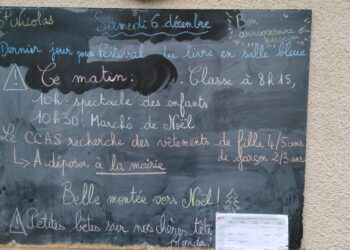 St Nicolas
Samedi 6 décembre
Bon
anniversaire
Dernier jour pour festival du livre en salle bleue
Ce matin : Classe à 8h15,
10h : spectacle des enfants
10h30 : Marché de Noël
Le CCAS recherche des vêtements de fille 4/5 ans
de garçon 2/3 ans
↳ A déposer à la mairie
Belle montée vers Noël !
Petites bêtes sur nos chères têtes
blondes